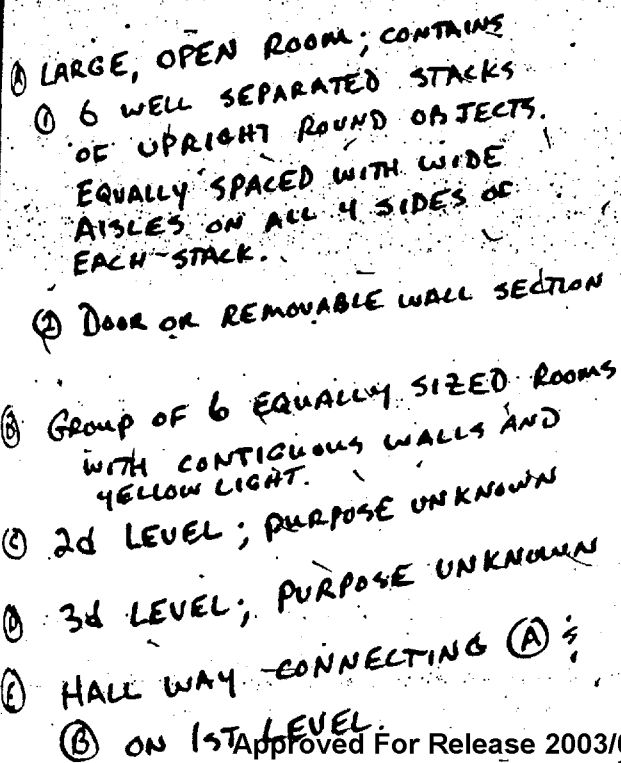 Ⓐ LARGE, OPEN ROOM; CONTAINS
① 6 WELL SEPARATED STACKS
OF UPRIGHT ROUND OBJECTS.
EQUALLY SPACED WITH WIDE
AISLES ON ALL 4 SIDES OF
EACH STACK.
② DOOR OR REMOVABLE WALL SECTION
Ⓑ GROUP OF 6 EQUALLY SIZED ROOMS
WITH CONTIGUOUS WALLS AND
YELLOW LIGHT.
Ⓒ 2d LEVEL; PURPOSE UNKNOWN
Ⓓ 3d LEVEL; PURPOSE UNKNOWN
Ⓔ HALL WAY CONNECTING Ⓐ &
Ⓑ ON 1ST LEVEL.
Approved For Release 2003/